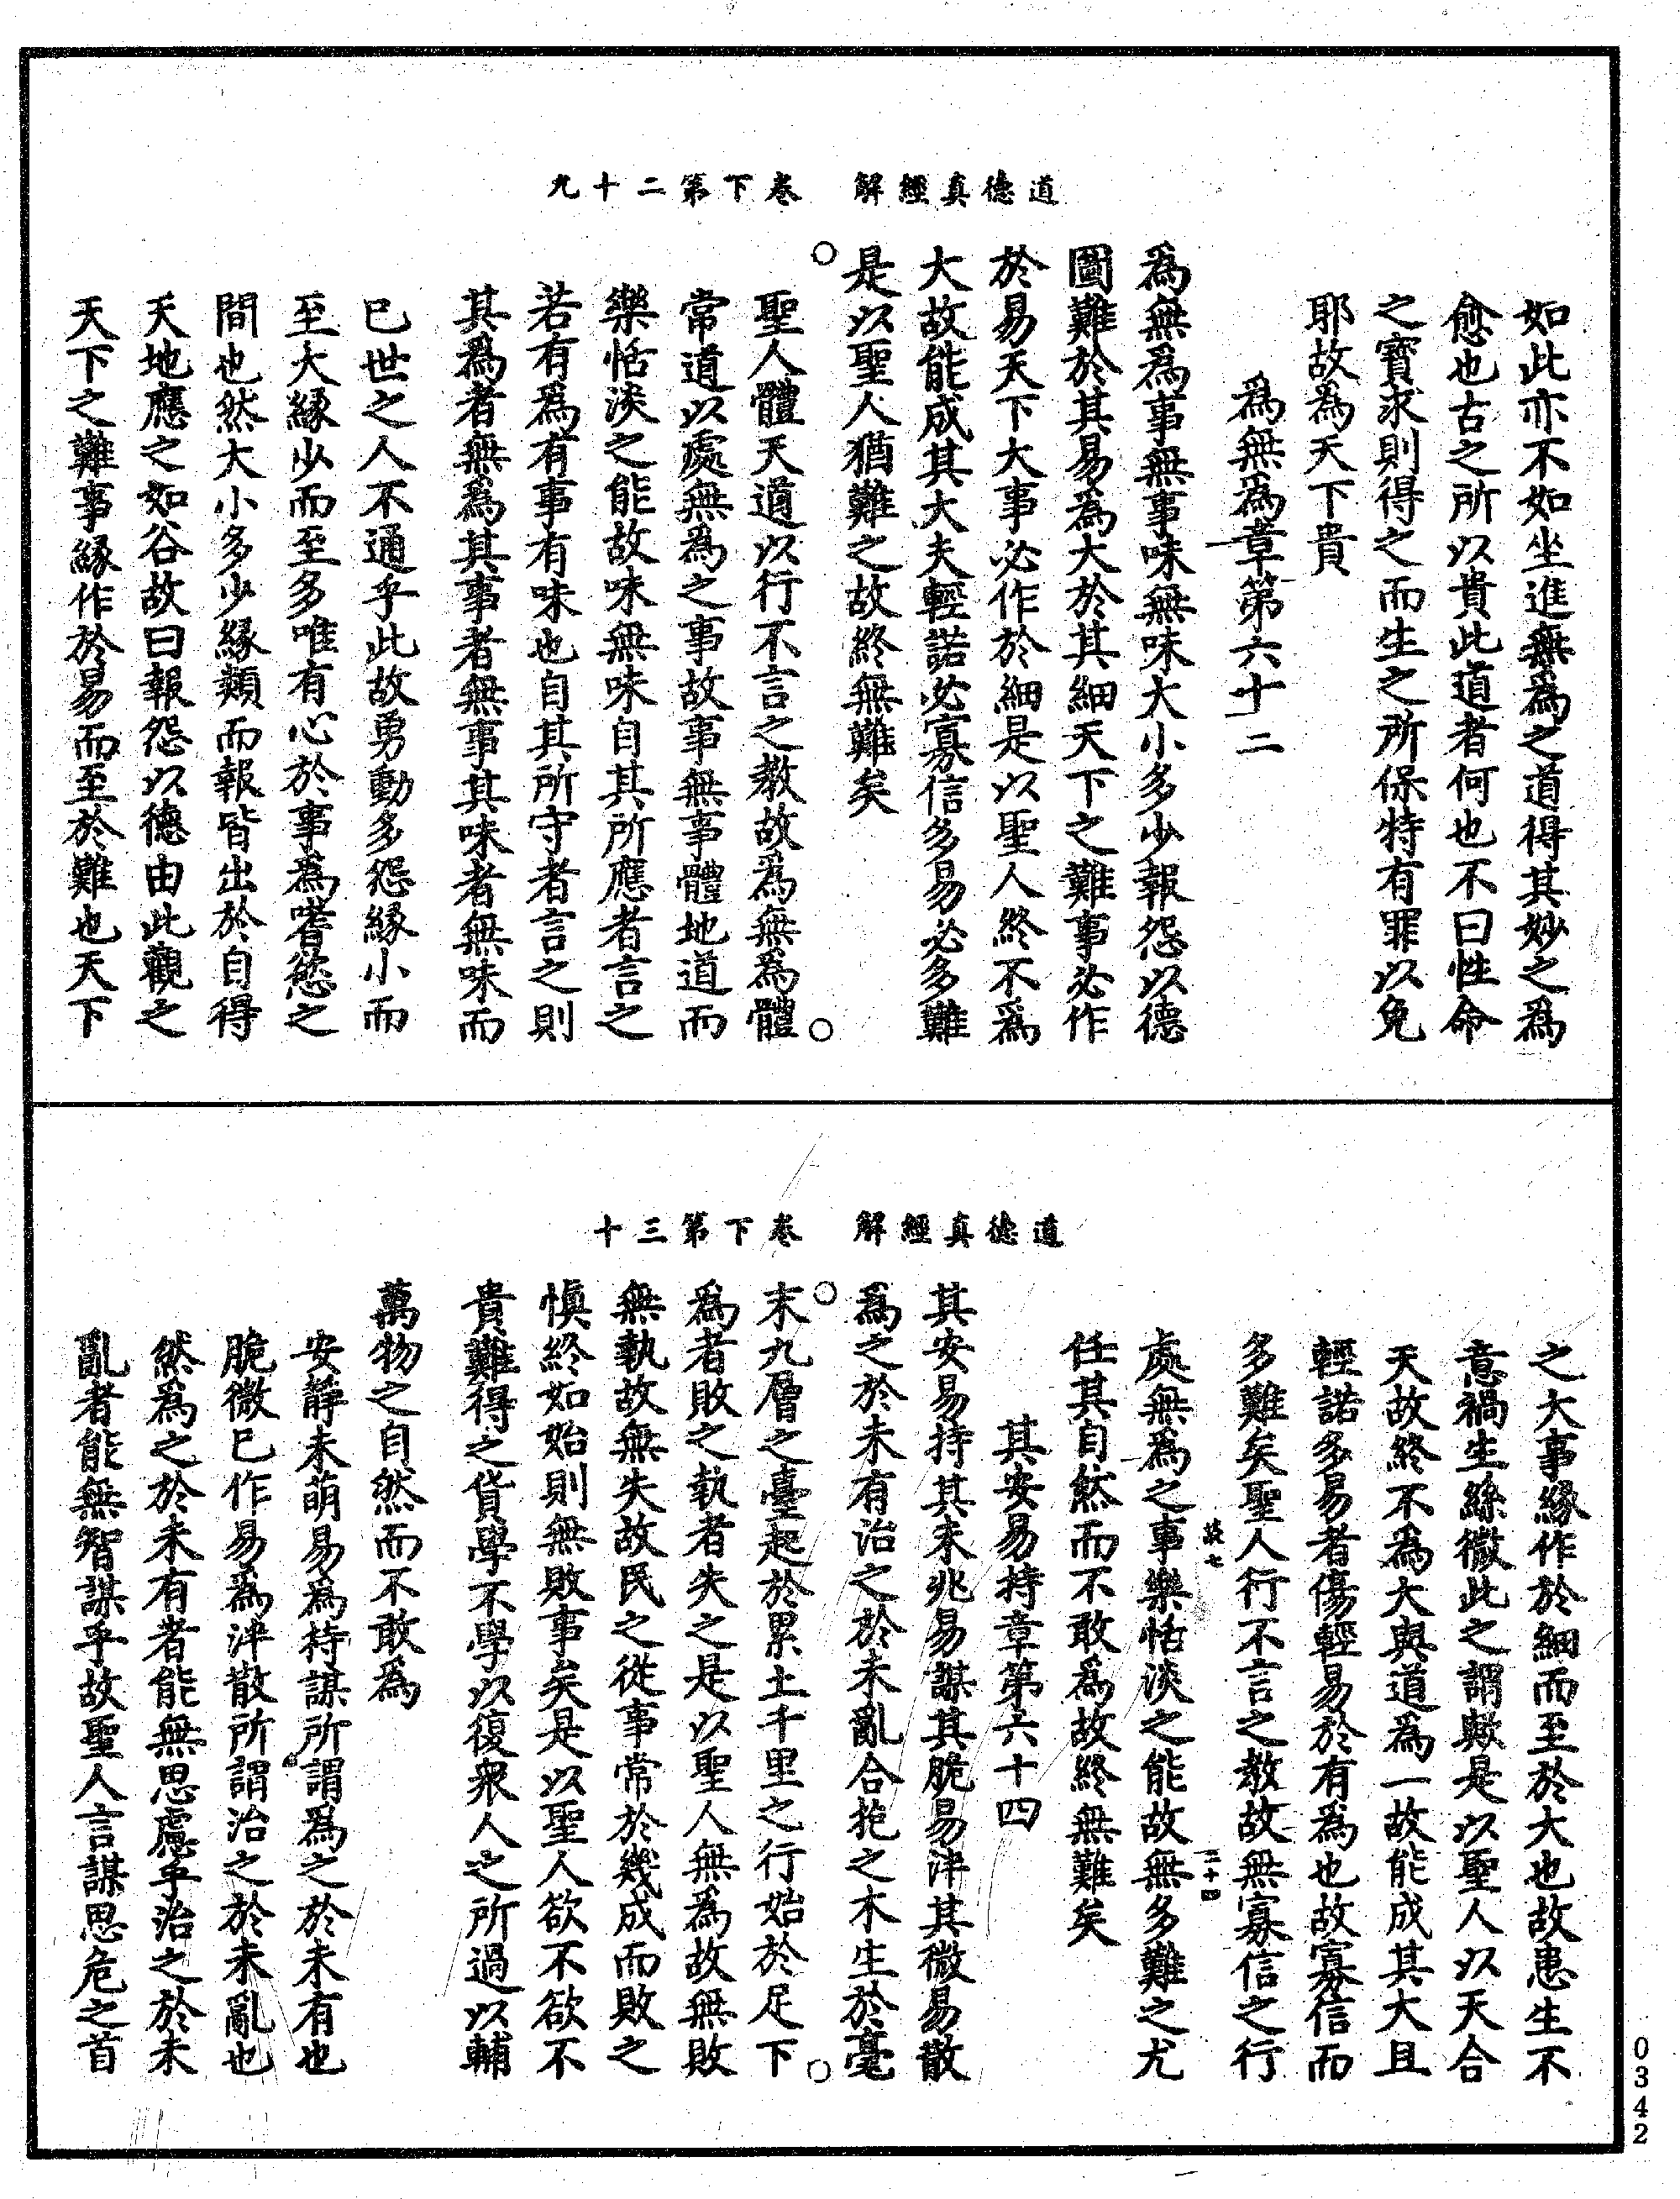 道德真經解　卷下第二十九
如此亦不如坐進無為之道得其妙之為
愈也古之所以貴此道者何也不曰性命
之寶求則得之而生之所保特有罪以免
耶故為天下貴
為無為章第六十二
為無為事無事味無味大小多少報怨以德
圖難於其易為大於其細天下之難事必作
於易天下大事必作於細是以聖人終不為
大故能成其大夫輕諾必寡信多易必多難
是以聖人猶難之故終無難矣
聖人體天道以行不言之教故為無為體
常道以處無為之事故事無事體地道而
樂恬淡之能故味無味自其所應者言之
若有為有事有味也自其所守者言之則
其為者無為其事者無事其味者無味而
已世之人不通乎此故勇動多怨緣小而
至大緣少而至多唯有心於事為嗜慾之
間也然大小多少緣類而報皆出於自得
天地應之如谷故曰報怨以德由此觀之
天下之難事緣作於易而至於難也天下
道德真經解　卷下第三十
之大事緣作於細而至於大也故患生不
意禍生絲微此之謂歟是以聖人以天合
天故終不為大與道為一故能成其大且
輕諾多易者傷輕易於有為也故寡信而
多難矣聖人行不言之教故無寡信之行
談七　三十四
處無為之事樂恬淡之能故無多難之尤
任其自然而不敢為故終無難矣
其安易持章第六十四
其安易持其未兆易謀其脆易泮其微易散
為之於未有治之於未亂合抱之木生於毫
末九層之臺起於累土千里之行始於足下
為者敗之執者失之是以聖人無為故無敗
無執故無失故民之從事常於幾成而敗之
慎終如始則無敗事矣是以聖人欲不欲不
貴難得之貨學不學以復衆人之所過以輔
萬物之自然而不敢為
安靜未萌易為持謀所謂為之於未有也
脆微已作易為泮散所謂治之於未亂也
然為之於未有者能無思慮乎治之於未
亂者能無智謀乎故聖人言謀思危之首
0342